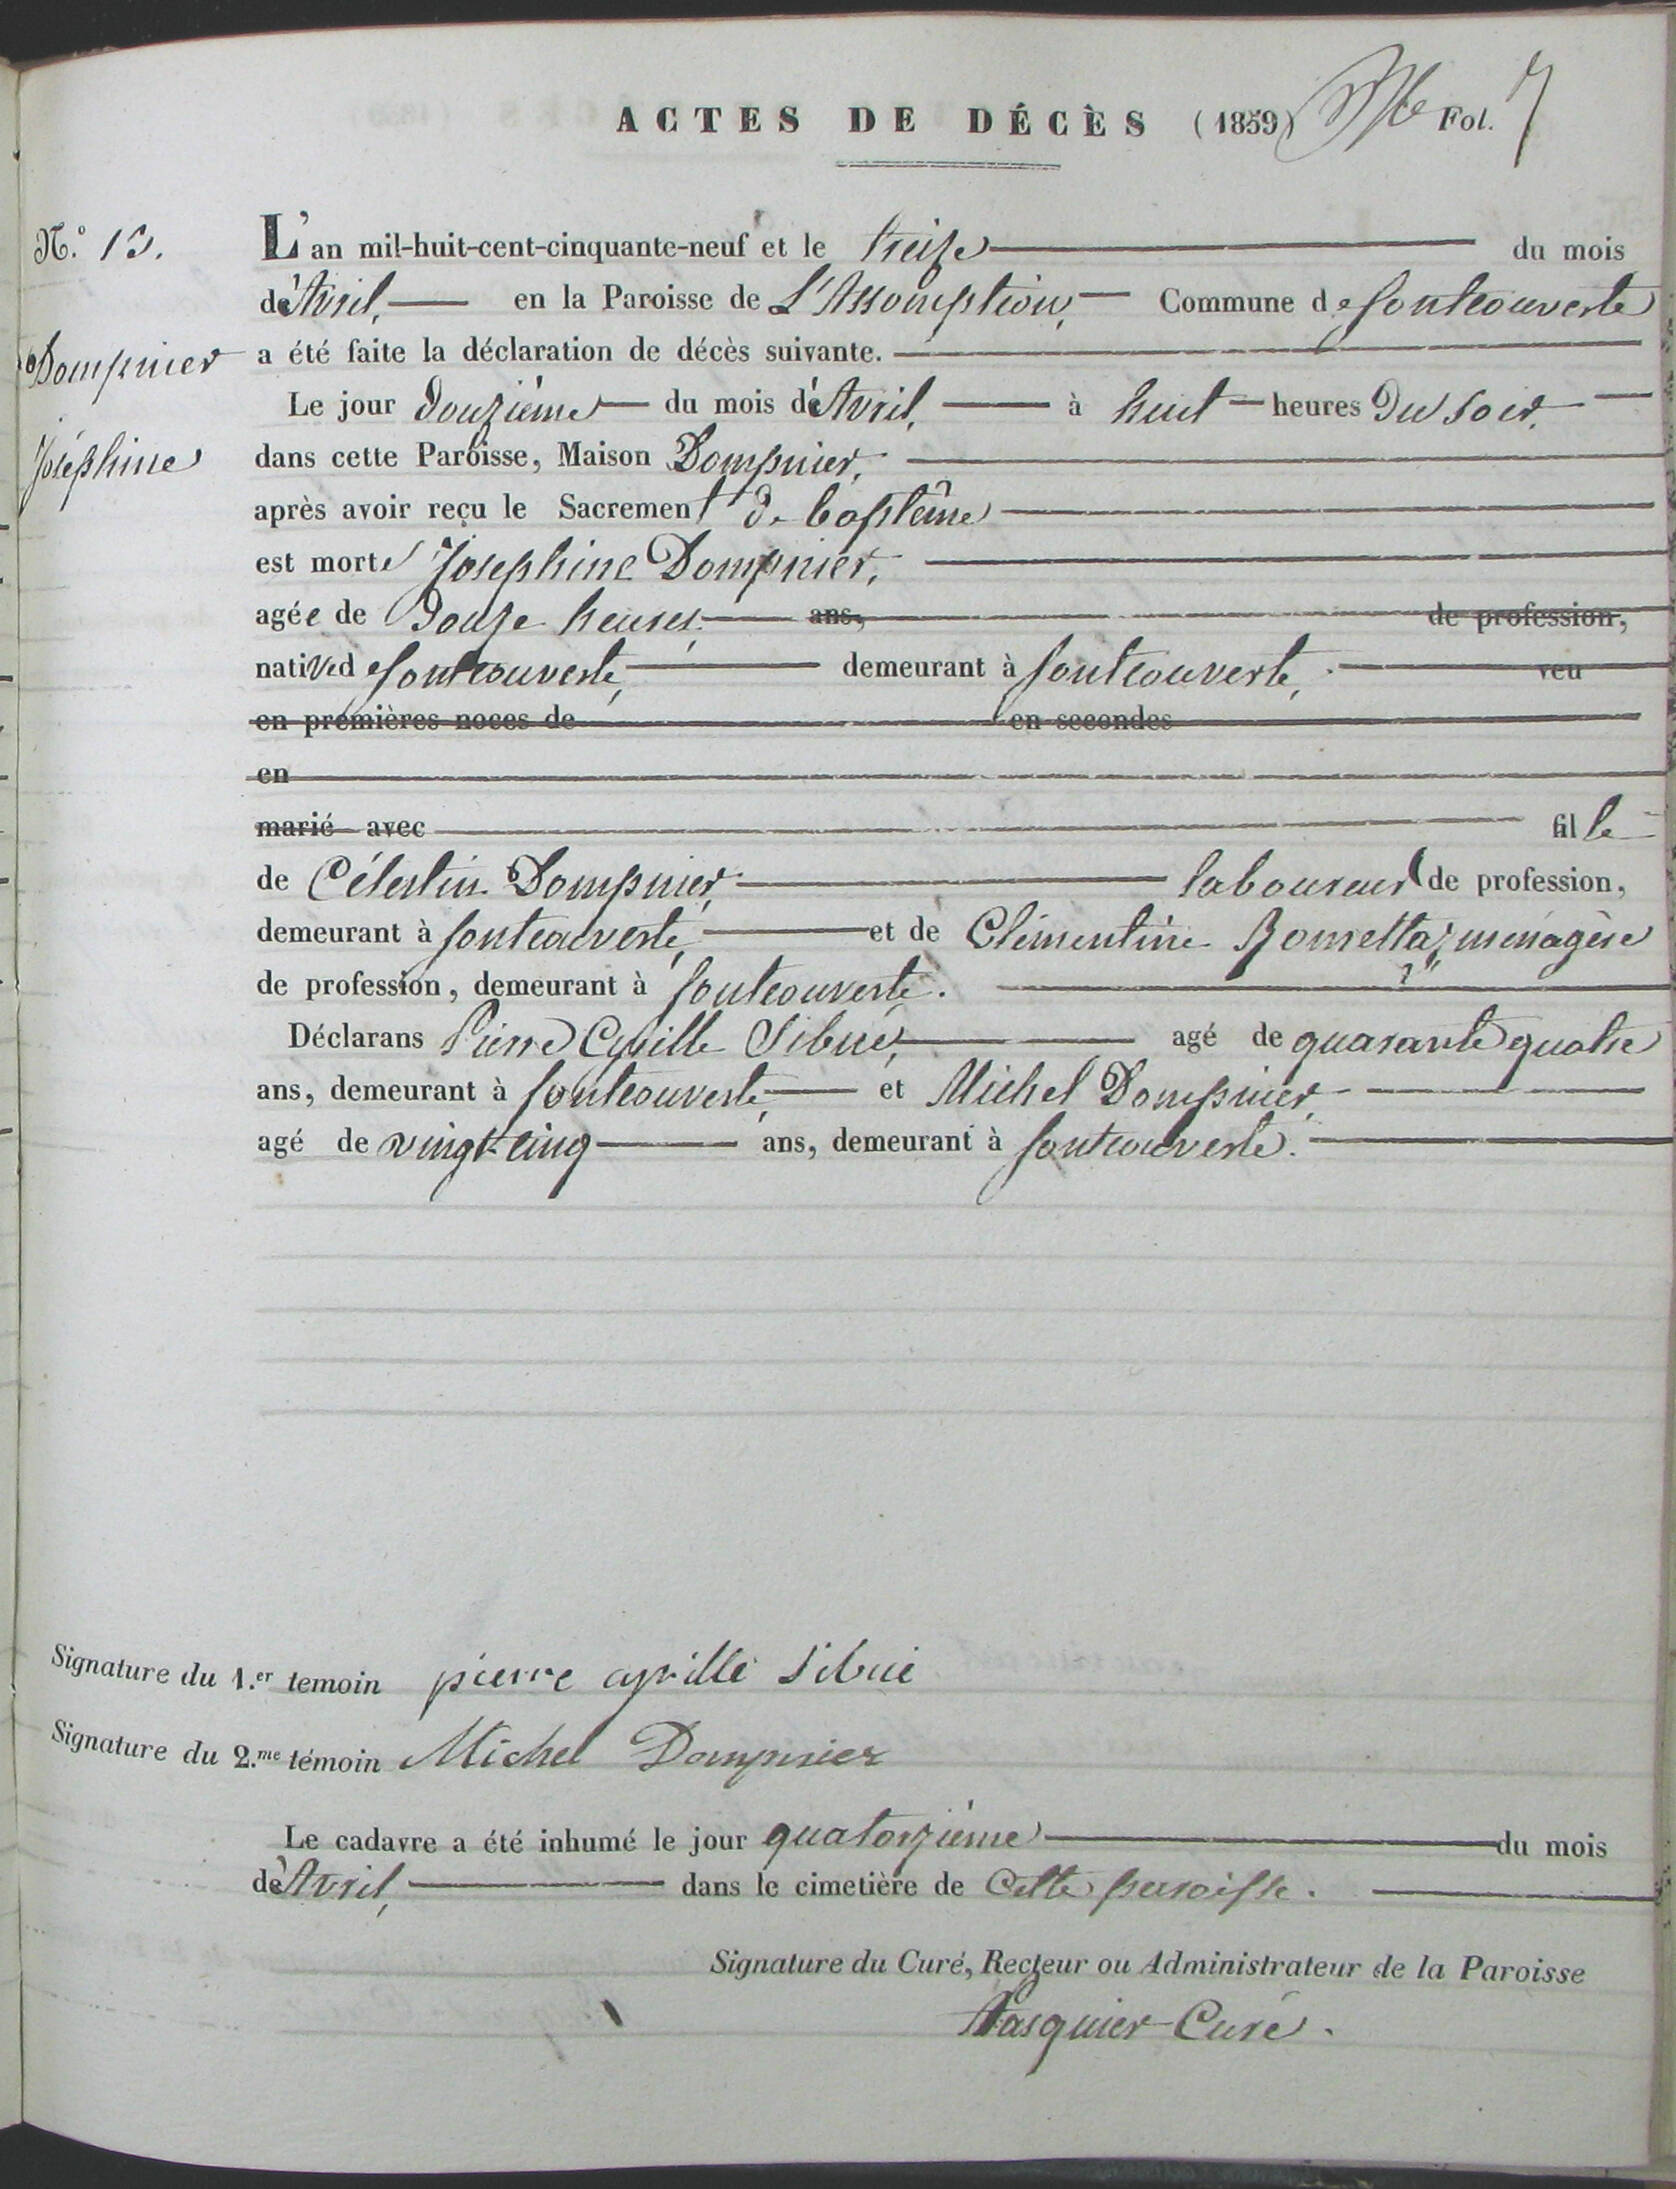 ACTES DE DÉCÈS (1859) Fol. 7
N.° 13. L'an mil-huit-cent-cinquante-neuf et le treize du mois
d'Avril, en la Paroisse de L'Assomption, Commune de fontcouverte
Dompnier a été faite la déclaration de décès suivante.
Le jour douzième du mois d'Avril, à huit heures du soir.
Joséphine dans cette Paroisse, Maison Dompnier,
après avoir reçu le Sacrement de baptême
est morte Josephine Dompnier,
agée de Douze heures ans, de profession,
native de fontcouverte, demeurant à fontcouverte, veu
en premières noces de en secondes
en
marié avec fille
de Célestin Dompnier, laboureur de profession,
demeurant à fontcouverte, et de Clémentine ménagère
de profession, demeurant à fontcouverte.
Déclarans Pierre Cyrille Sibué, agé de quarante quatre
ans, demeurant à fontcouverte, et Michel Dompnier,
agé de vingt-cinq ans, demeurant à fontcouverte.
Signature du 1.er temoin pierre cyrille Sibué
Signature du 2.me témoin Michel Dompnier
Le cadavre a été inhumé le jour quatorzième du mois
d'Avril, dans le cimetière de cette paroisse.
Signature du Curé, Recteur ou Administrateur de la Paroisse
Pasquier Curé.